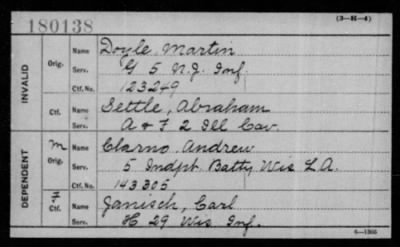 (3-H-4)
180138
INVALID
Orig. Name Doyle, Martin
Serv. G 5 N.J. Inf.
Ctf.No. 123249
Ctf. Name Settle, Abraham
Serv. A & F 2 Ill Cav.
DEPENDENT
M Orig. Name Clarno Andrew
Serv. 5 Indpt. Batty Wis L.A.
Ctf. No. 143305
Ctf. Name Janisch, Carl
Serv. H 29 Wis Inf.
6-1366